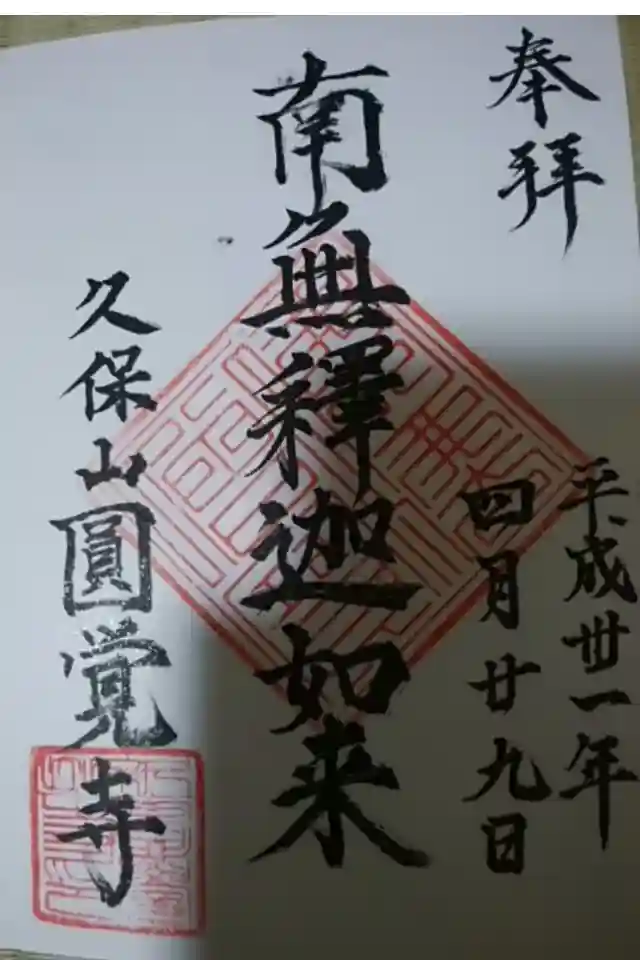 奉拝
平成丗一年
四月廿九日
南無釋迦如来
久保山圓覚寺